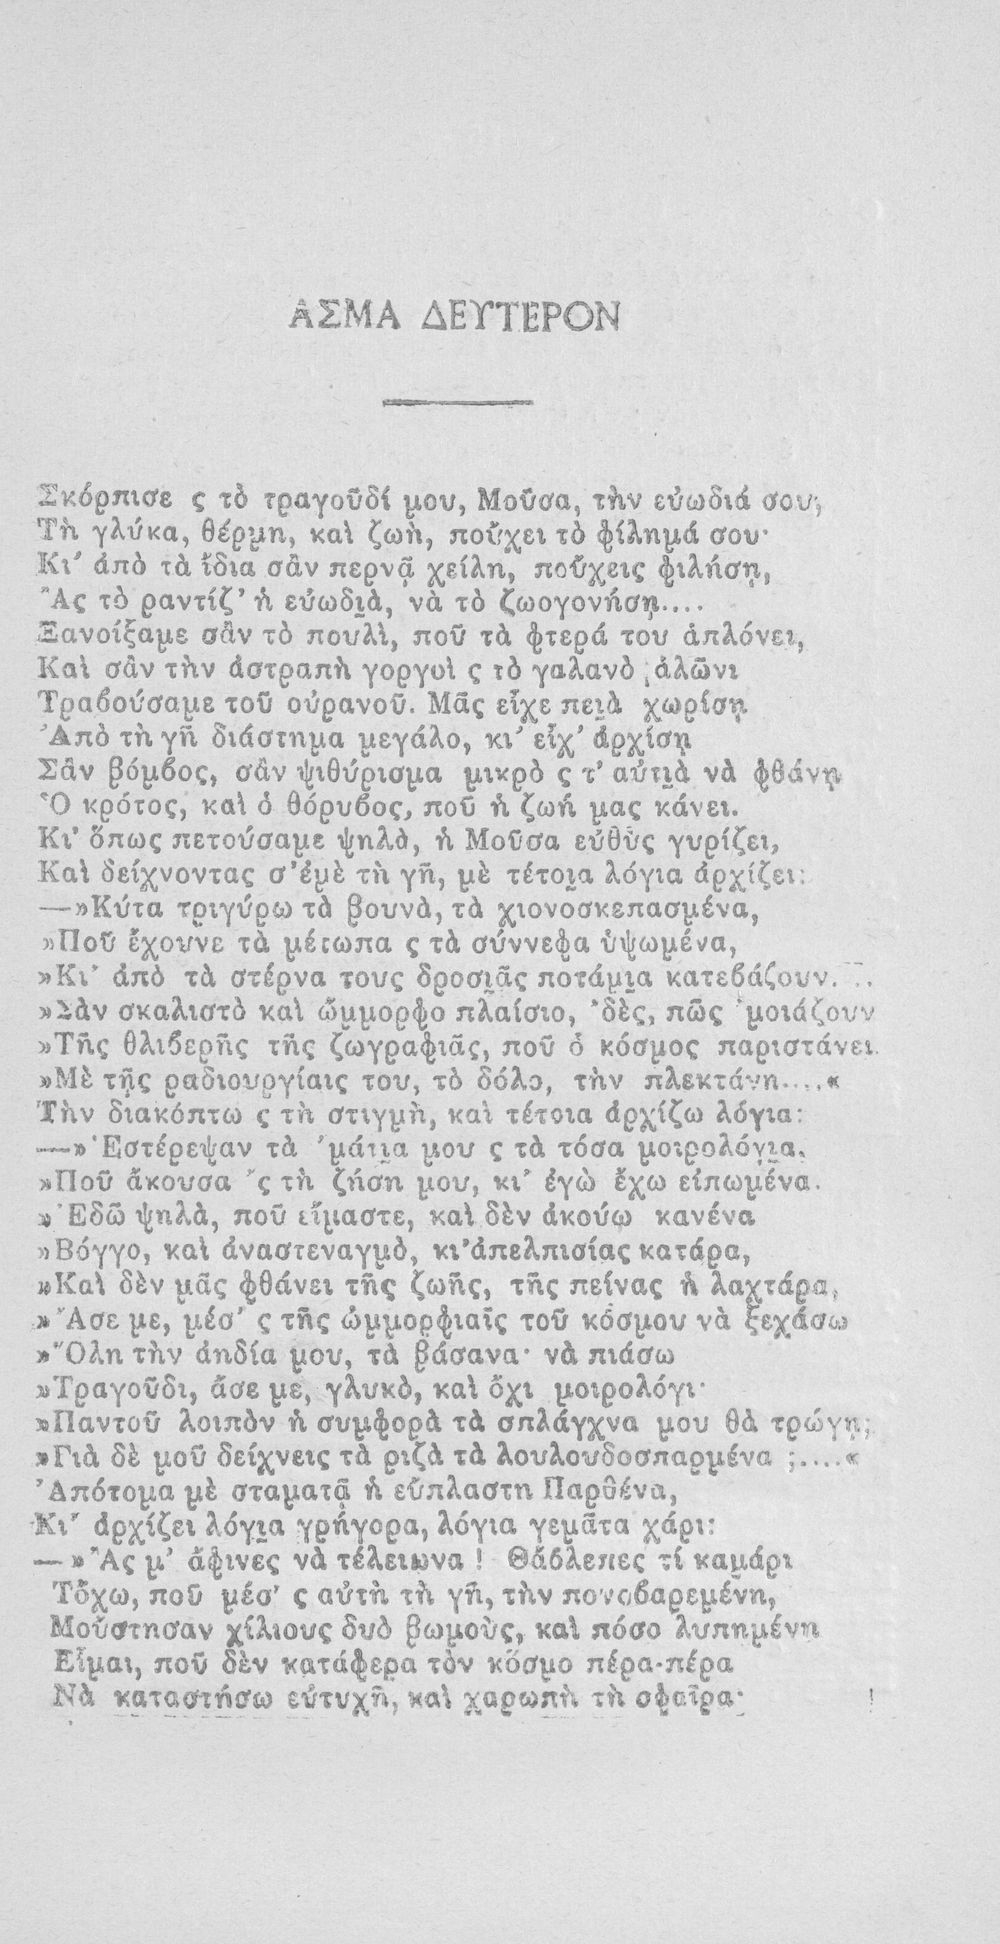 ΑΣΜΑ ΔΕΥΤΕΡΟΝ
Σκόρπισε ς τὸ τραγοῦδί μου, Μοῦσα, τὴν εὐωδιά σου,
Τὴ γλύκα, θέρμη, καὶ ζωὴ, ποὖχει τὸ φίλημά σου·
Κι' ἀπὸ τὰ ἴδια σἂν περνᾷ χείλη, ποὖχεις φιλήσῃ,
Ἂς τὸ ραντίζ' ἡ εὐωδιὰ, νὰ τὸ ζωογονήσῃ....
Ξανοίξαμε σἂν τὸ πουλὶ, ποῦ τὰ φτερά του ἁπλόνει,
Καὶ σἂν τὴν ἀστραπὴ γοργοὶ ς τὸ γαλανὸ ἁλῶνι
Τραβούσαμε τοῦ οὐρανοῦ. Μᾶς εἶχε πειὰ χωρίσῃ
Ἀπὸ τὴ γῆ διάστημα μεγάλο, κι' εἶχ' ἀρχίσῃ
Σἂν βόμβος, σἂν ψιθύρισμα μικρὸ ς τ' αὐτιὰ νὰ φθάνῃ
Ὁ κρότος, καὶ ὁ θόρυβος, ποῦ ἡ ζωή μας κάνει.
Κι' ὅπως πετούσαμε ψηλὰ, ἡ Μοῦσα εὐθὺς γυρίζει,
Καὶ δείχνοντας σ'ἐμὲ τὴ γῆ, μὲ τέτοια λόγια ἀρχίζει:
—»Κύτα τριγύρω τὰ βουνὰ, τὰ χιονοσκεπασμένα,
»Ποῦ ἔχουνε τὰ μέτωπα ς τὰ σύννεφα ὑψωμένα,
»Κι' ἀπὸ τὰ στέρνα τους δροσιᾶς ποτάμια κατεβάζουν...
»Σὰν σκαλιστὸ καὶ ὤμμορφο πλαίσιο, 'δὲς, πῶς 'μοιάζουν
»Τῆς θλιβερῆς τῆς ζωγραφιᾶς, ποῦ ὁ κόσμος παριστάνει
»Μὲ τῇς ραδιουργίαις του, τὸ δόλο, τὴν πλεκτάνη....«
Τὴν διακόπτω ς τὴ στιγμὴ, καὶ τέτοια ἀρχίζω λόγια:
—»Ἐστέρεψαν τὰ 'μάτια μου ς τὰ τόσα μοιρολόγια,
»Ποῦ ἄκουσα 'ς τὴ ζήση μου, κι' ἐγὼ ἔχω εἰπωμένα.
»Ἐδῶ ψηλὰ, ποῦ εἴμαστε, καὶ δὲν ἀκούω κανένα
»Βόγγο, καὶ ἀναστεναγμὸ, κι'ἀπελπισίας κατάρα,
»Καὶ δὲν μᾶς φθάνει τῆς ζωῆς, τῆς πείνας ἡ λαχτάρα,
»Ἄσε με, μέσ' ς τῆς ὠμμορφιαῖς τοῦ κόσμου νὰ ξεχάσω
»Ὅλη τὴν ἀηδία μου, τὰ βάσανα· νὰ πιάσω
»Τραγοῦδι, ἄσε με, γλυκὸ, καὶ ὄχι μοιρολόγι·
»Παντοῦ λοιπὸν ἡ συμφορὰ τὰ σπλάγχνα μου θὰ τρώγῃ;
»Γιὰ δὲ μοῦ δείχνεις τὰ ριζὰ τὰ λουλουδοσπαρμένα ;....«
Ἀπότομα μὲ σταματᾷ ἡ εὔπλαστη Παρθένα,
Κι' ἀρχίζει λόγια γρήγορα, λόγια γεμᾶτα χάρι:
—»Ἂς μ' ἄφινες νὰ τέλειωνα ! Θἄβλεπες τί καμάρι
Τὤχω, ποῦ μέσ' ς αὐτὴ τὴ γῆ, τὴν πονοβαρεμένη,
Μοὔστησαν χίλιους δυὸ βωμοὺς, καὶ πόσο λυπημένη
Εἶμαι, ποῦ δὲν κατάφερα τὸν κόσμο πέρα-πέρα
Νὰ καταστήσω εὐτυχῆ, καὶ χαρωπὴ τὴ σφαῖρα·